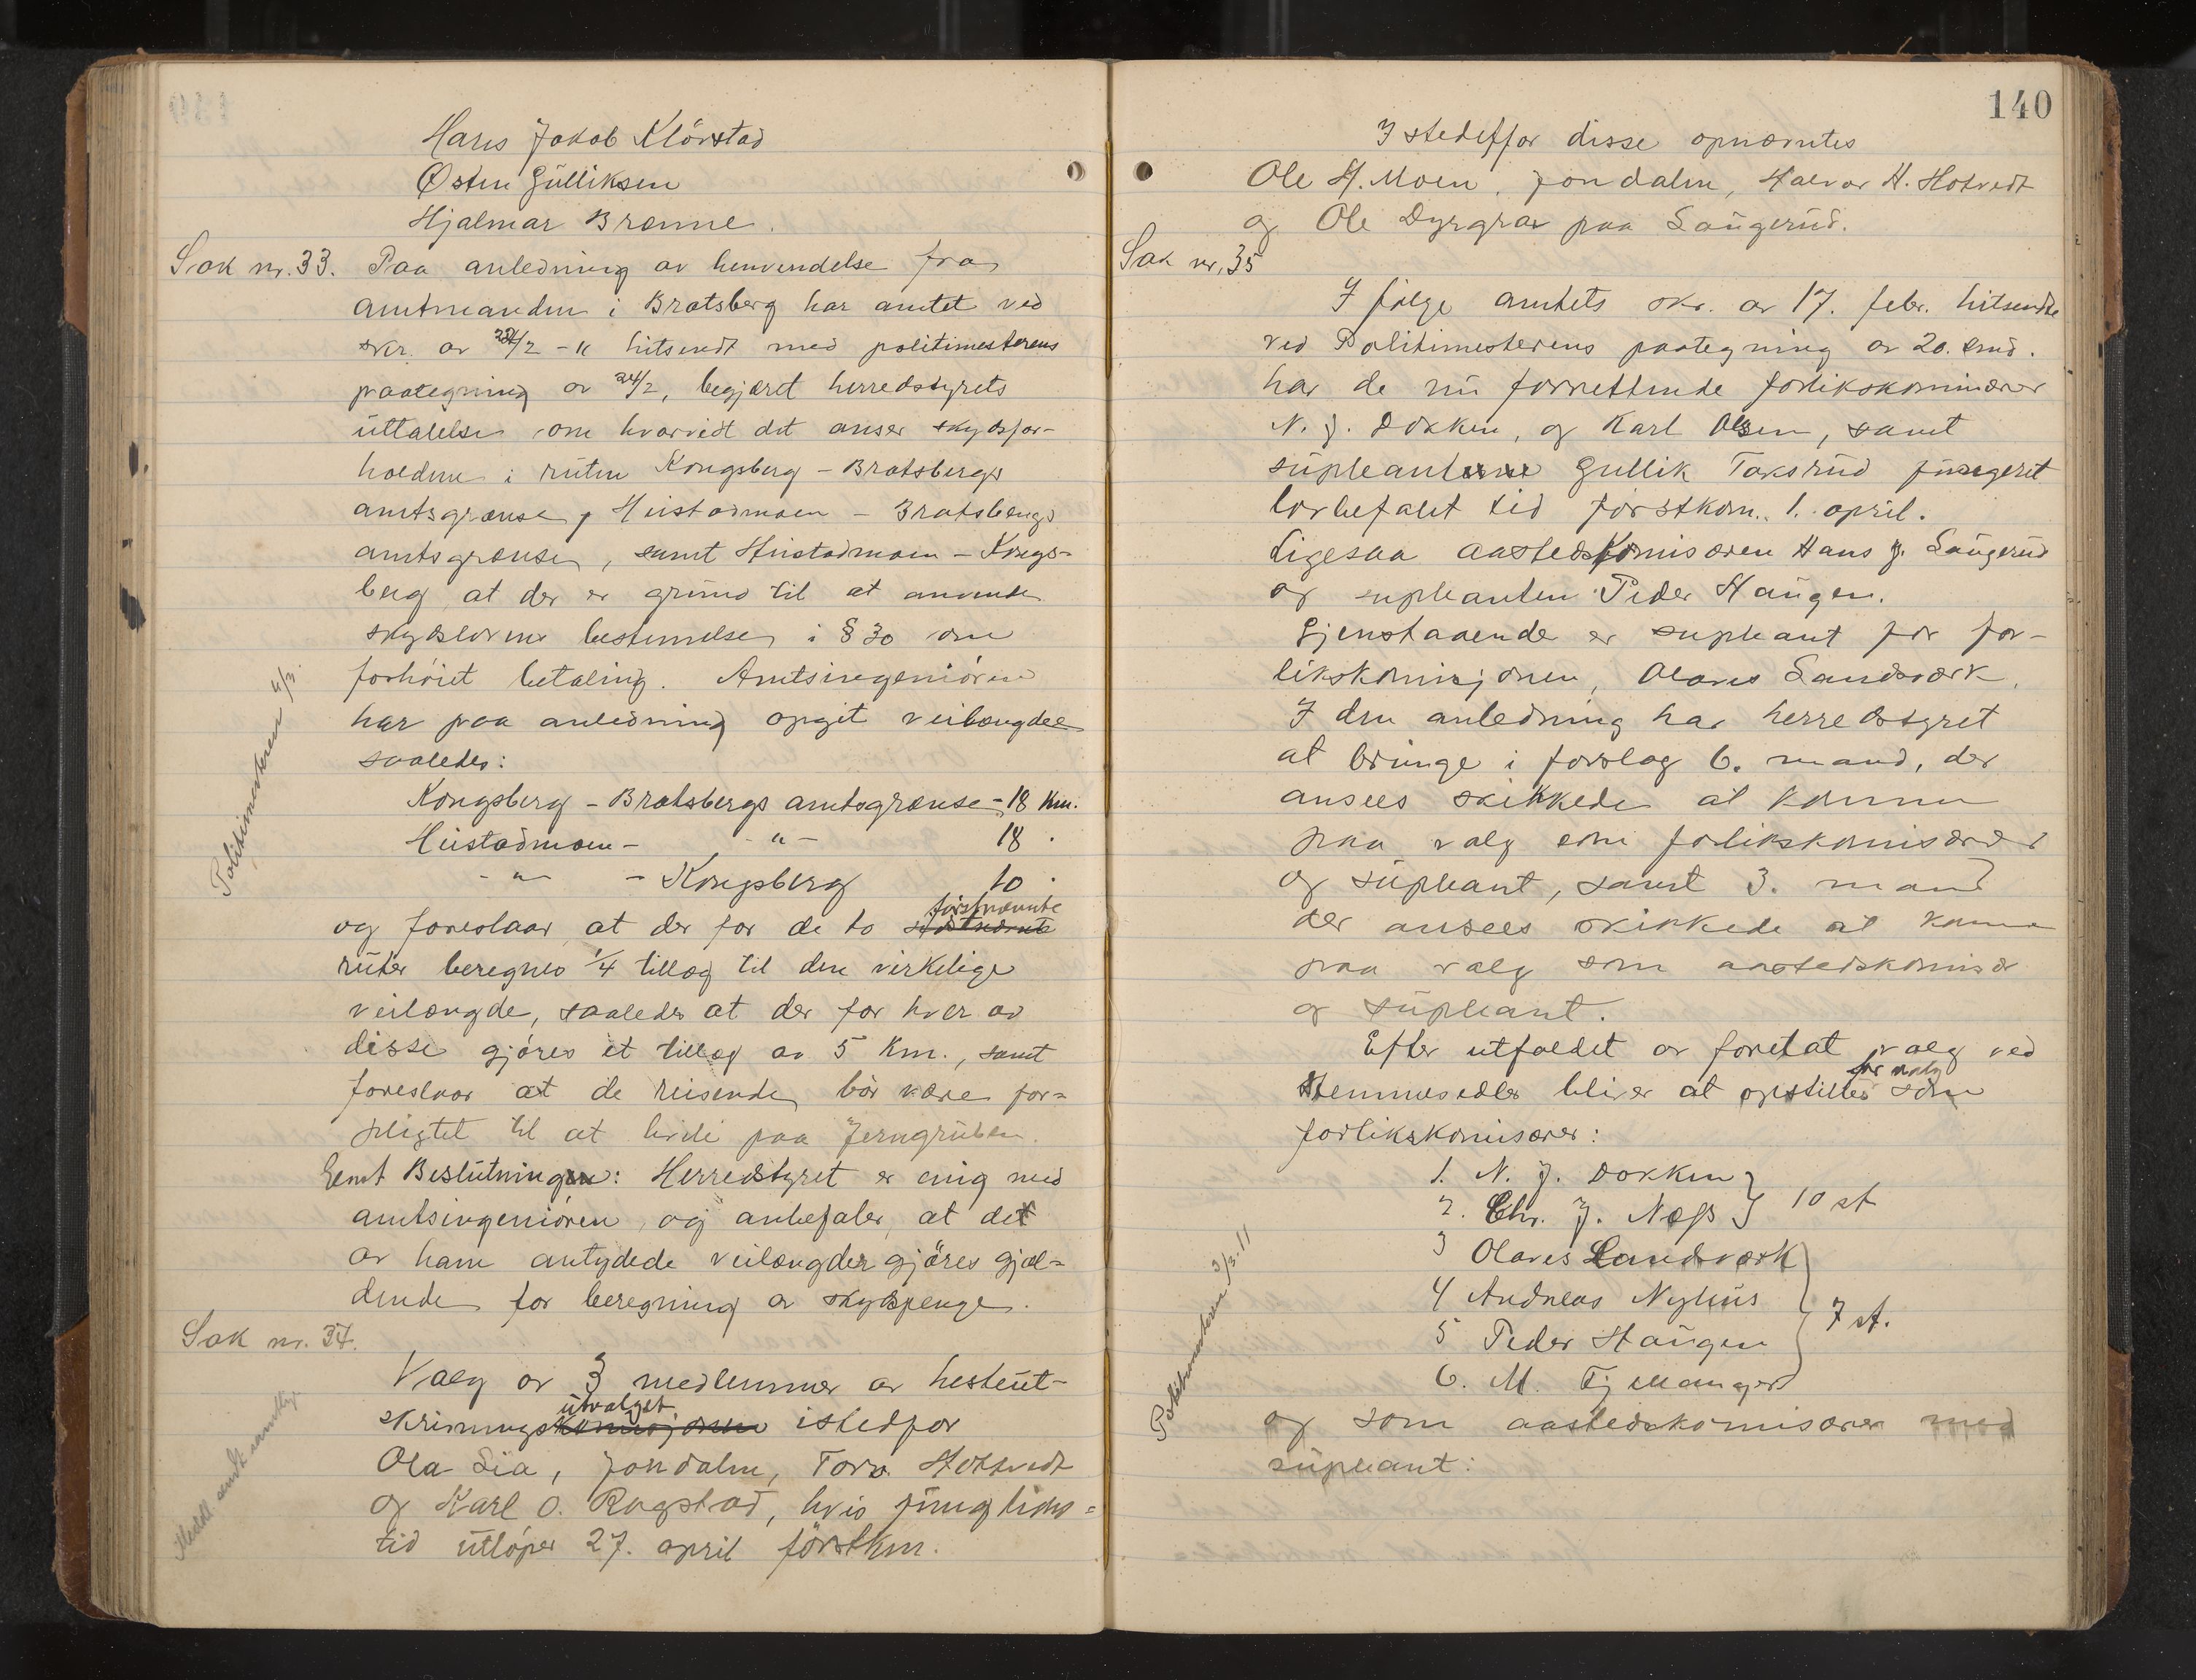 Hans Jakob Klörstad
Østen Gülliksen
Hjalmar Brænne.
Sak nr. 33. Paa anledning av henvendelse fra
amtmanden i Bratsberg har amtet ved
skr. av 22/2 - 11 hitsendt med politimesterens
paategning av 24/2, begjæret herredstyrets
üttalelse om hvorvidt det anser skydsfor-
holdene i ruten Kongsberg - Bratsbergs
amtsgrænse, Hüstadmoen - Bratsbergs
amtsgrænse, samt Hüstadmoen - Kongs-
berg at der er grund til at anvende
skydslovens bestemmelse i § 30 om
forhöiet betaling. Amtsingeniören
har paa anledning opgit veilængden
saaledes:
Kongsberg - Bratsbergs amtsgrænse - 18 Km.
Hüstadmoen - - " - 18 .
- " - - Kongsberg 10 .
förstnævnte
og foreslaar at der for de to sidstnævnte
rüter beregnes 1/4 tillæg til den virkelige
veilængde, saaledes at der for hver av
disse gjöres et tillæg av 5 Km., samt
foreslaar at de reisende bör være for-
pligtet til at hvile paa Jerngruben.
Enst Beslutning: Herredstyret er enig med
amtsingeniören og anbefaler, at de
av ham antydede veilængder gjöres gjæl-
dende for beregning av skydspenge.
Politimesteren 4/3.
Sak nr. 34.
Valg av 3 medlemmer av hesteut-
utvalget
skrivningskomisjonen istedfor
Ola Lia, Jondalen, Torv. Hottvedt
og Karl O. Rugstad, hvis fungtions-
tid utlöper 27. april förstkm.
140
I stedetfor disse opnævntes
Ole H. Moen, Jondalen, Halvor H. Hotvedt
og Ole Dyrgrav paa Saugerud.
Sak nr. 35
I fölge amtets skr. av 17. febr. hitsendte
ved Politimesterens paategning av 20. smd.
har de nü forrettende forlikskomisærer
N. J. Dokken, og Karl Olsen, samt
süpleanterne Gullik Taksrud fungeret
lovbefalet tid förstkom. 1. april.
Ligesaa aastedskomisæren Hans J. Saugerud
og supleanten Peder Haugen.
Gjenstaaende er supleant for for-
likskomisjonen, Olaves Landsværk.
I den anledning har herredstyret
at bringe i forslag 6. mand, der
ansees skikkede at komme
paa valg som forlikskomisærer
og süpleant, samt 3. mand
der ansees skikkede at komme
paa valg som aastedskomisær
og süpleant.
Efter utfaldet av foretat valg ved
for valg
stemmesedler bliver at opstilles som
forlikskomisærer:
1. N. J. Dokken
2. Chr. J. Næss } 10 st
3 Olaves Landsværk
4 Andreas Nyhus
5 Peder Haugen } 7 st.
6. M. Fjellanger
Politimesteren 3/3.11
og som aastedskomisærer med
süpleant: